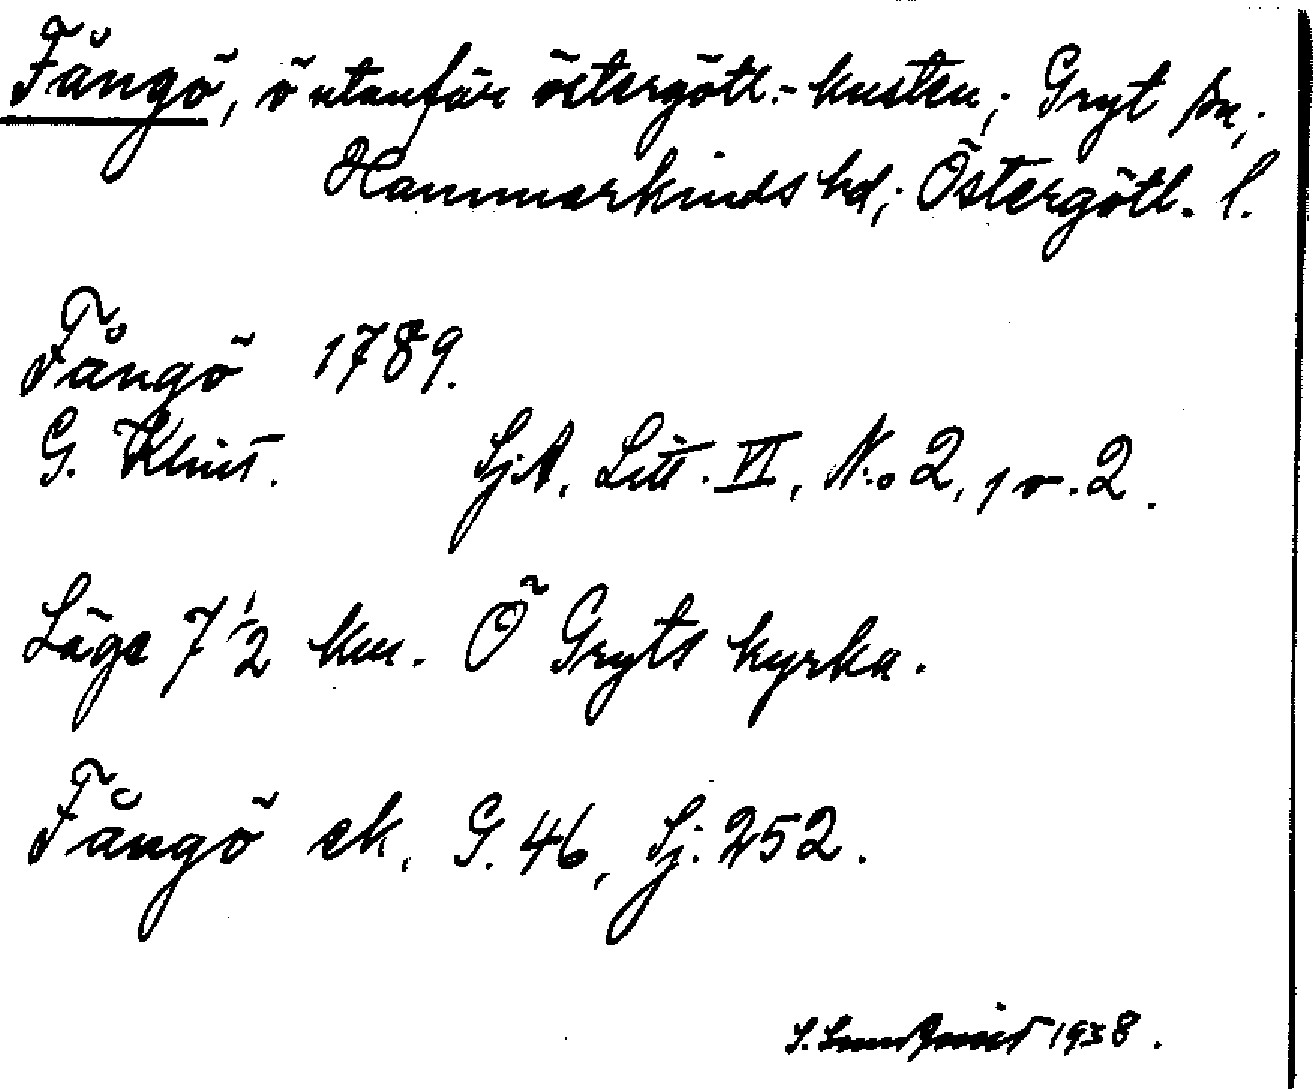 Fångö, ö utanför östergötl.-kusten; Gryt sn;
Hammarkinds hd; Östergötl. l.
Fångö 1789.
G. Klint. Sj.A. Litt. VI, N:o 2, 1 v. 2.
Läge 7 1/2 km. Ö Gryts kyrka.
Fångö ek. G. 46, Sj. 252.
S. 1938.